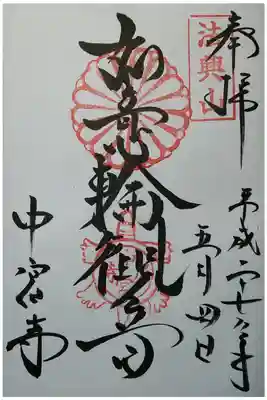 奉拝
法興山
平成二十七年
五月四日
如意輪觀音
中宮寺